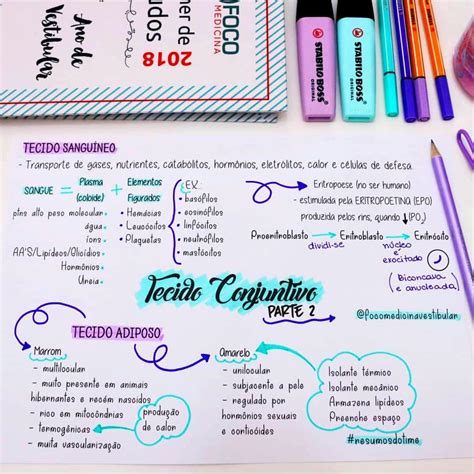 FOCO
MEDICINA
ner de
udos
2018
Ano de
Vestibular
STABILO BOSS
ORIGINAL
STABILO BOSS
ORIGINAL
TECIDO SANGUÍNEO
- Transporte de gases, nutrientes, catabólitos, hormônios, eletrólitos, calor e células de defesa
SANGUE = Plasma (coloide) + Elementos Figurados
ptns alto peso molecular
água
íons
AA'S/Lipídeos/Glicídios
Hormônios
Ureia
• Hemácias
• Leucócitos
• Plaquetas
EX.
• basófilos
• eosinófilos
• linfócitos
• neutrófilos
• mastócitos
Eritropoese (no ser humano)
- estimulada pela ERITROPOETINA (EPO)
produzida pelos rins, quando ↓(PO₂)
Proeritroblasto → Eritroblasto → Eritrócito
dividi-se
núcleo é exocitado
(Bicôncava e anucleada)
Tecido Conjuntivo
PARTE 2
@focomedicinavestibular
TECIDO ADIPOSO
Marrom
- multilocular
- muito presente em animais
hibernantes e recém nascidos
- rico em mitocôndrias
- termogênicas
- muita vascularização
produção
de calor
Amarelo
- unilocular
- subjacente a pele
- regulado por
hormônios sexuais
e corticóides
Isolante térmico
Isolante mecânico
Armazena lipídeos
Preenche espaço
#resumosdotime